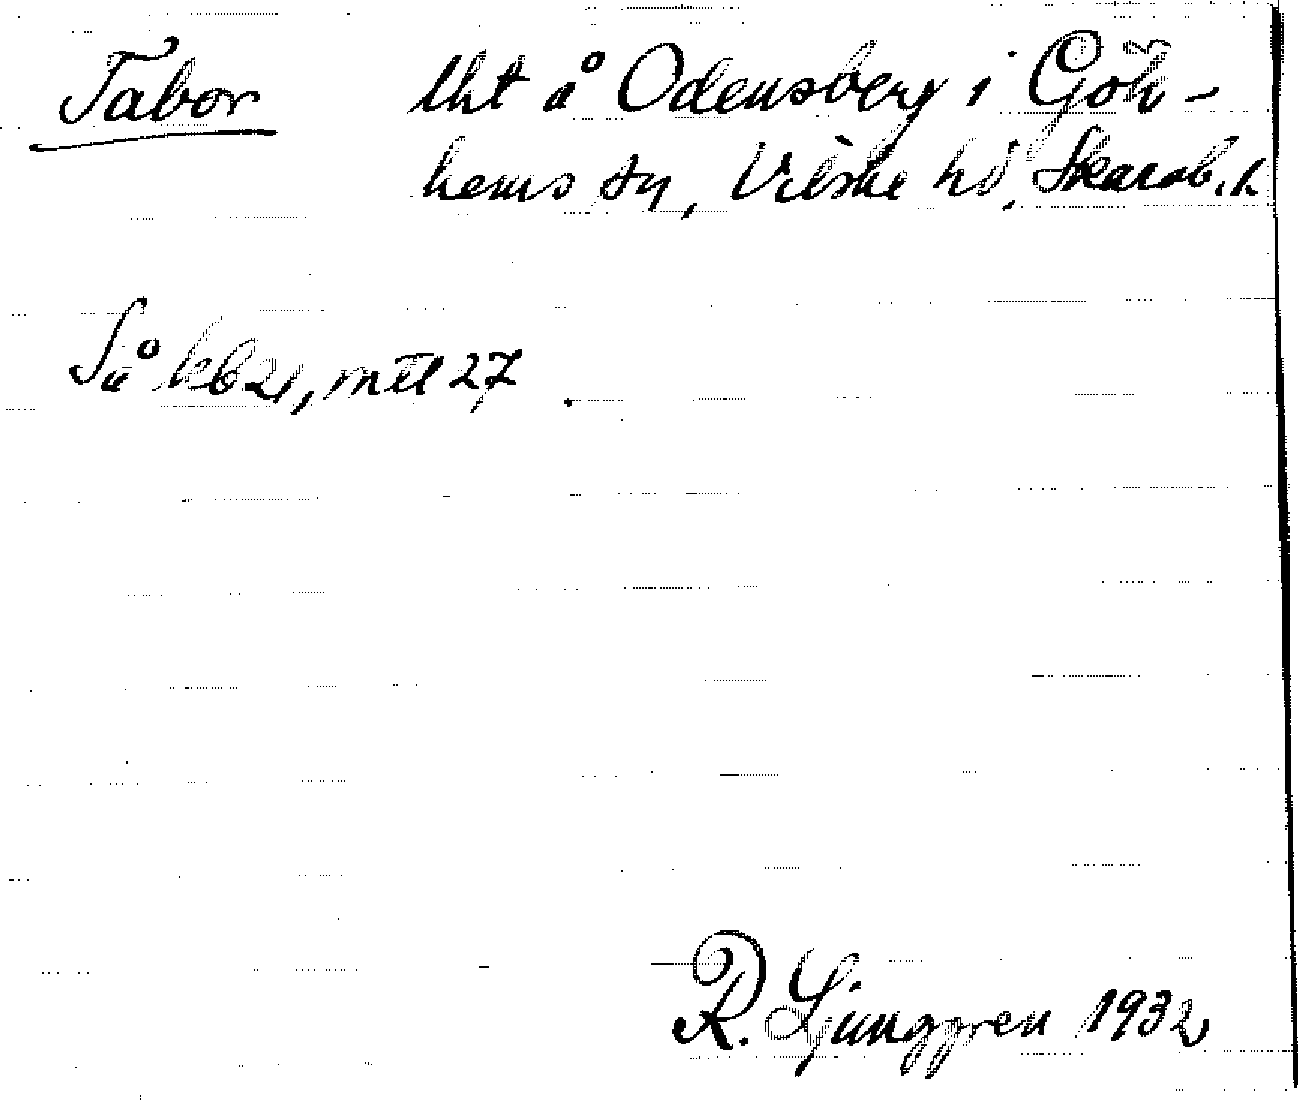 Tabor lht å Odensberg i Göt-
hems sn, Vilske hd, Skarab. l.
Så kb 21, mtl 27
R. Ljunggren 1932